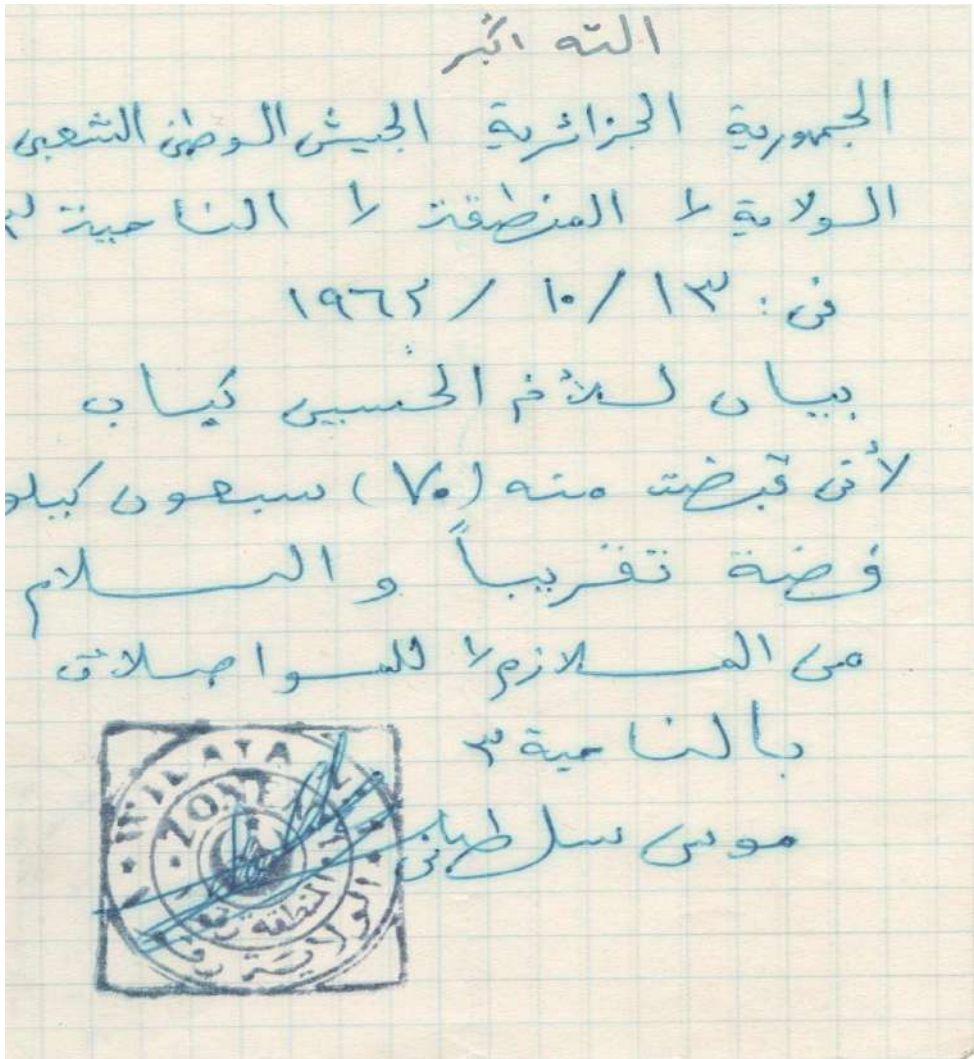 الله اكبر
الجمهورية الجزائرية الجيش الوطني الشعبي
الولاية ١ المنطقة ١ الناحية ٣
في: ١٣ / ١٠ / ١٩٦٢
بيان للأخ الحسين كباب
لأني قبضت منه (٧٠) سبعون كيلو
فضة تقريباً والسلام
من الملازم ١ للمواصلات
بالناحية ٣
موسى سلطاني
WILAYA
ZONE
المنطقة
الولاية